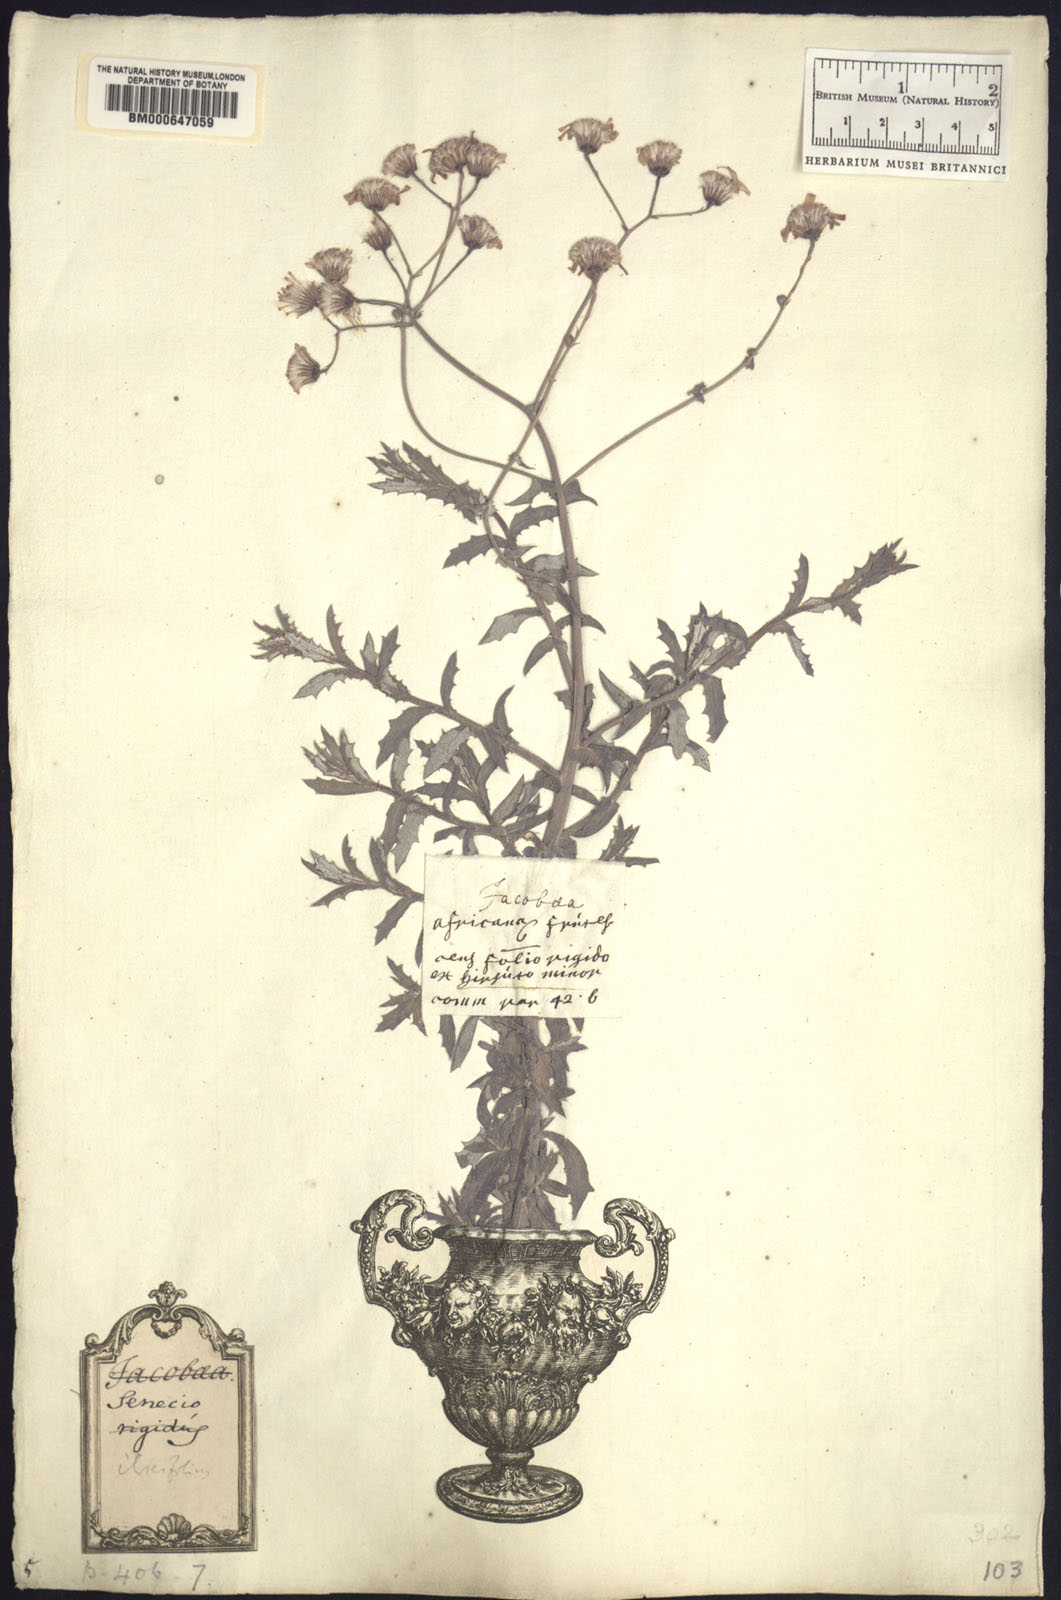 THE NATURAL HISTORY MUSEUM, LONDON
DEPARTMENT OF BOTANY
BM000647059
1 2
BRITISH MUSEUM (NATURAL HISTORY)
1 2 3 4 5
HERBARIUM MUSEI BRITANNICI
Jacobæa
africana frutes
cens folio rigido
et hirsuto minor
comm rar 42·6
Jacobæa.
Senecio
rigidus
ilicifolius
302
5 p-406-7.
103